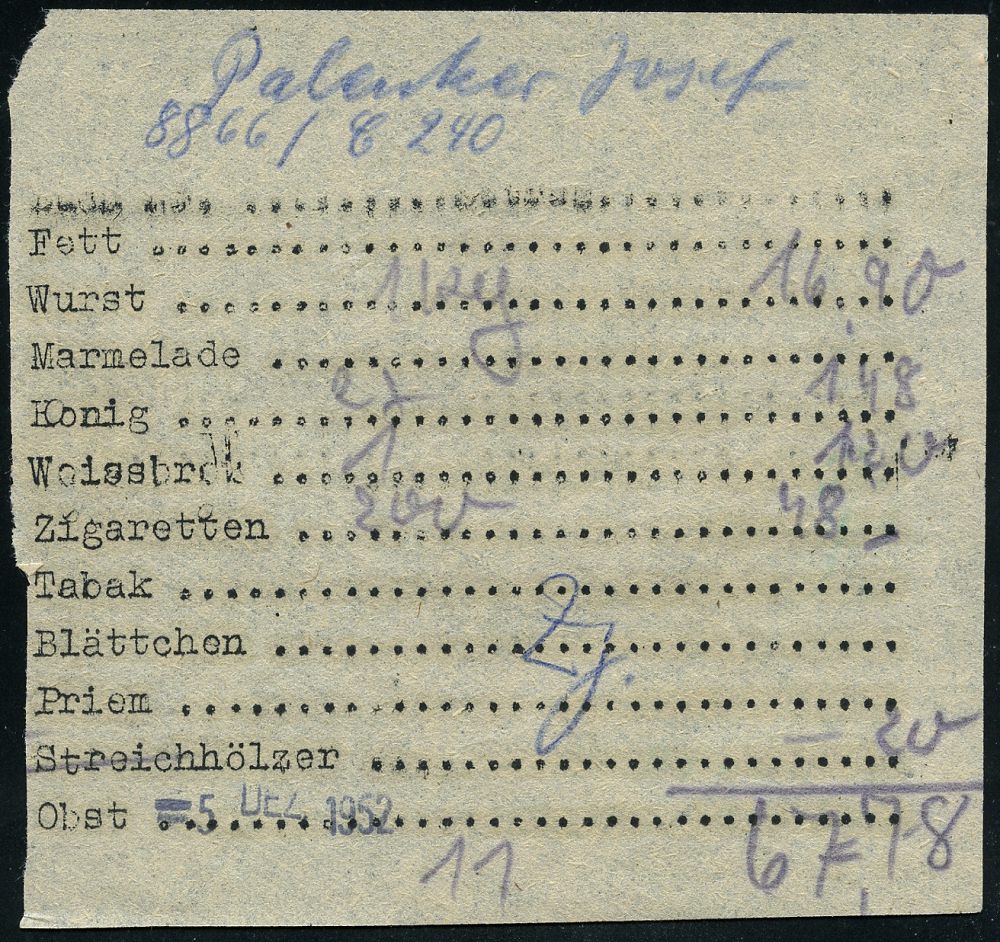 Palenker Josef
8866 / C 240
Fett
Wurst 1 kg 16,90
Marmelade
Konig 2 1,48
Weissbrot 1 1,20
Zigaretten 200 48 –
Tabak
Blättchen
Priem
Streichhölzer – 20
Obst =5. DEZ. 1952 67,78
11